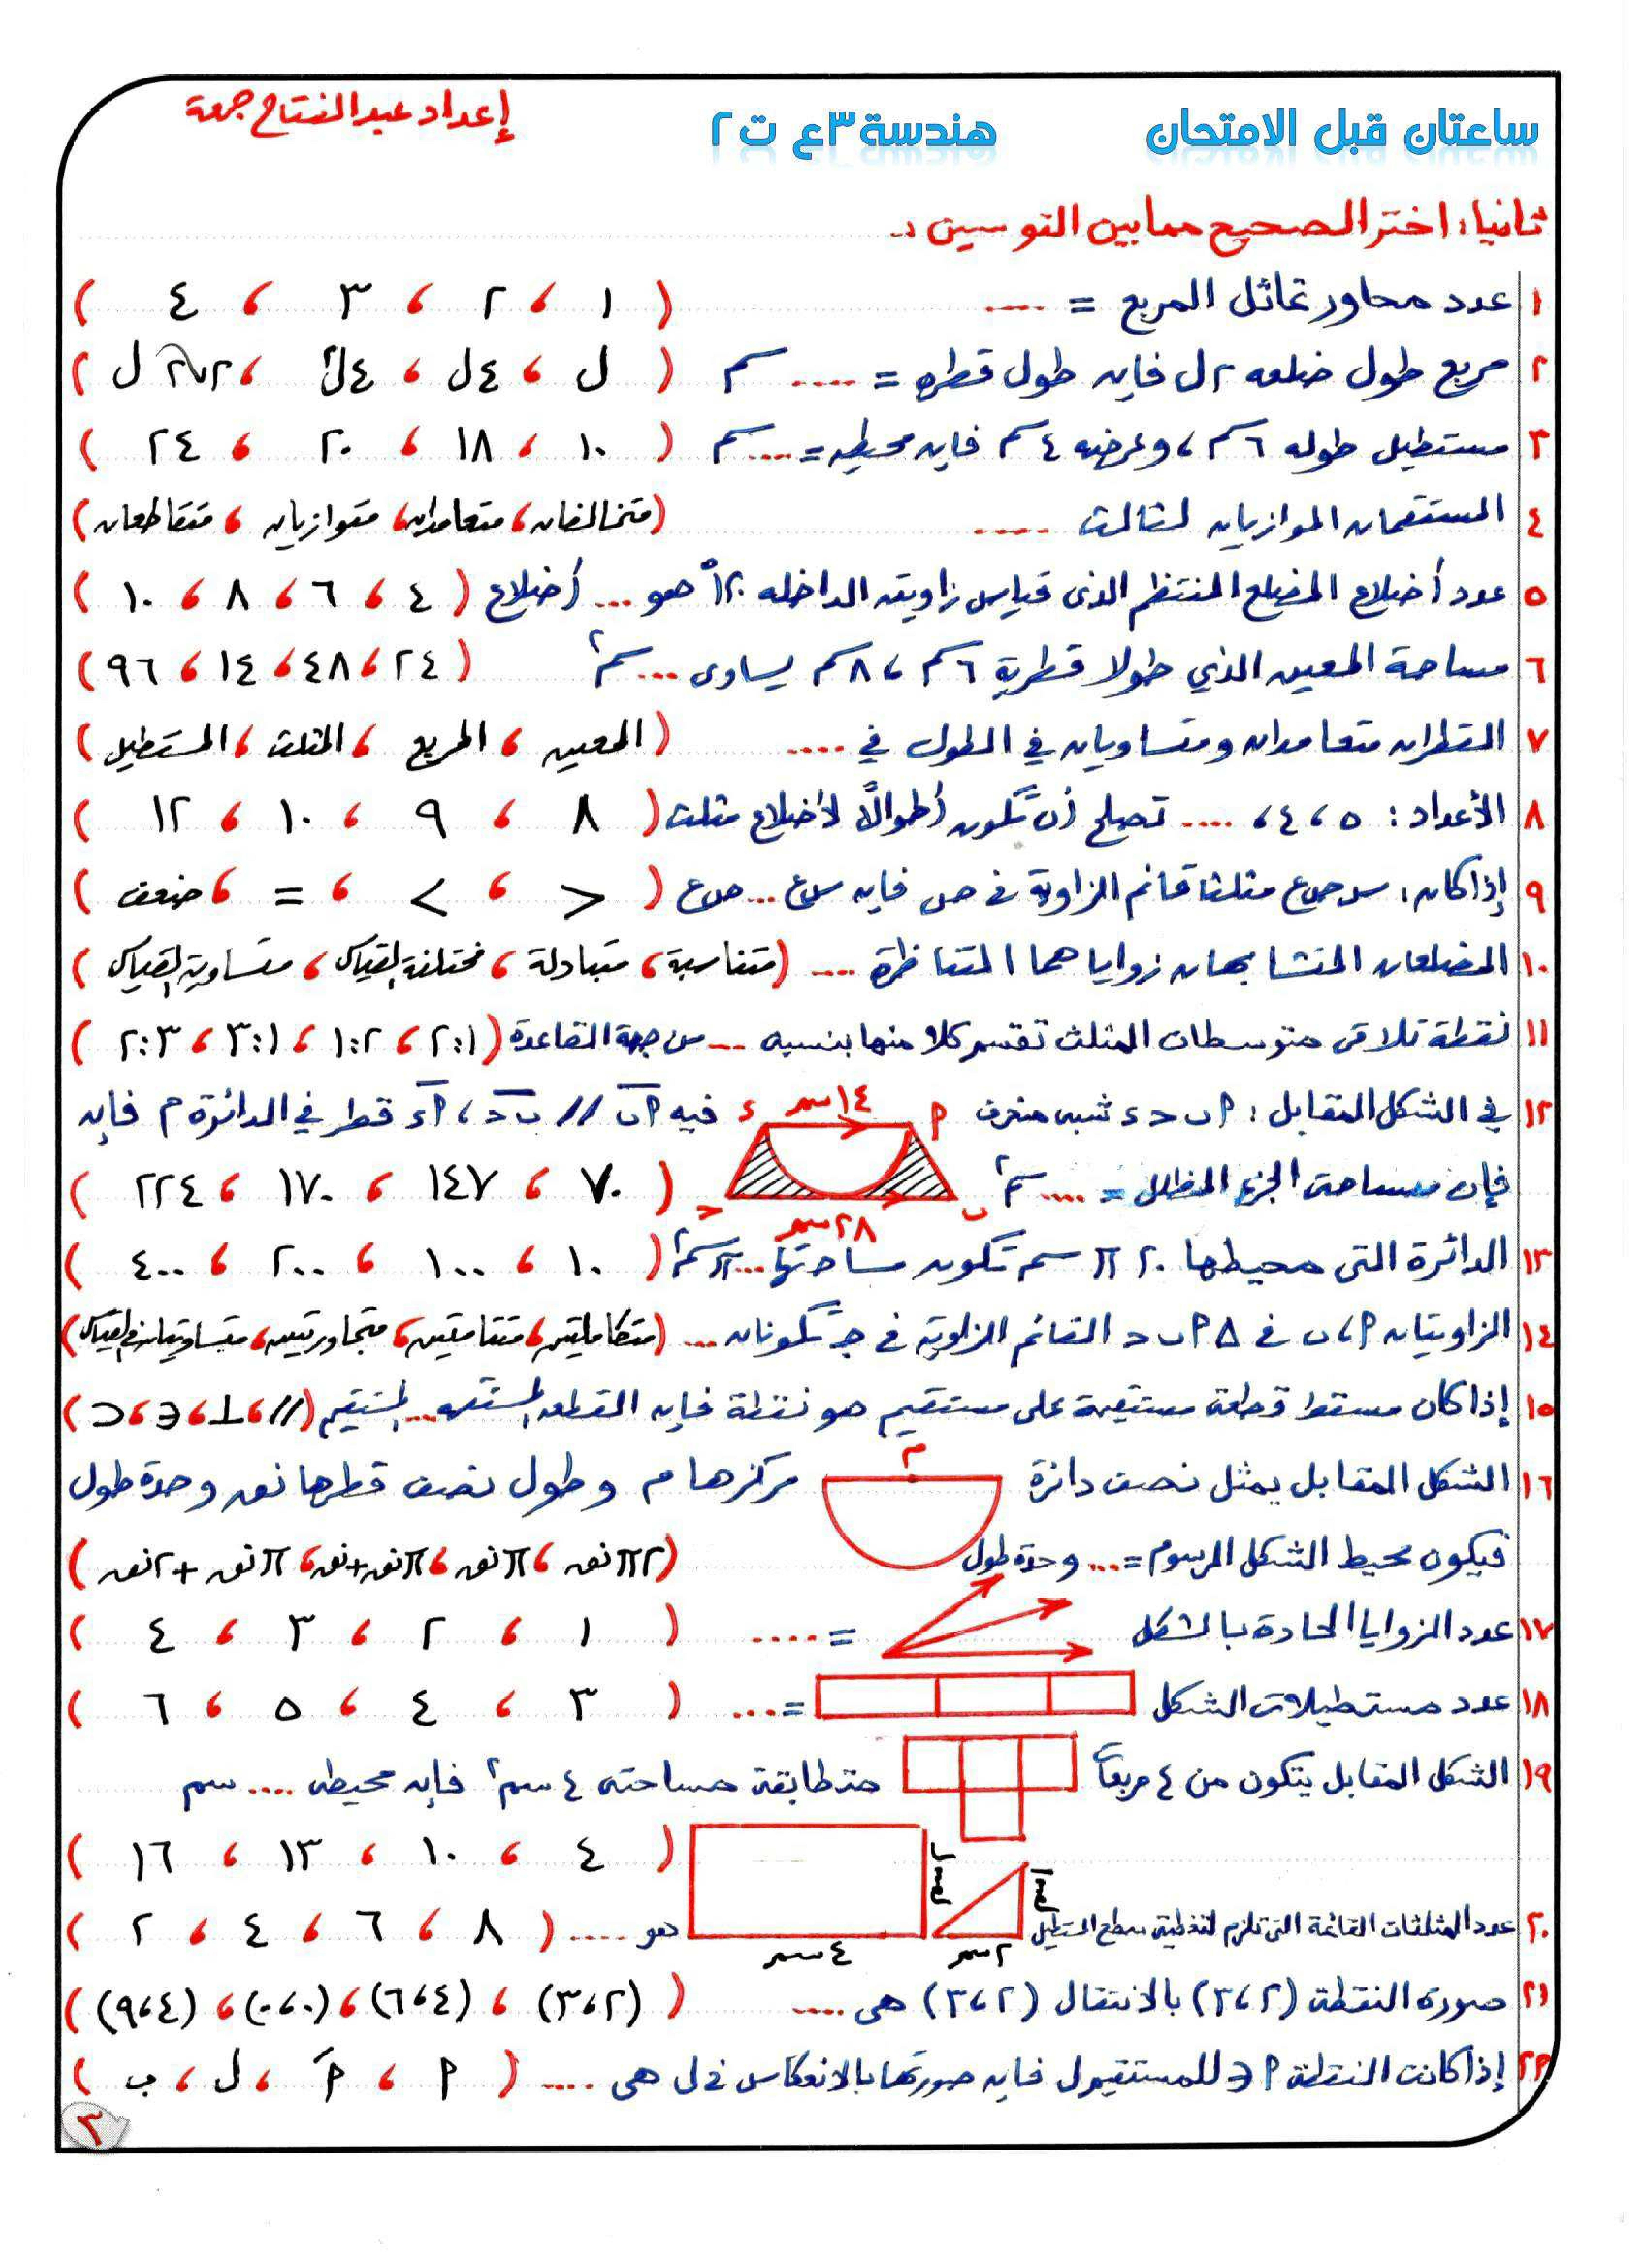 ساعتان قبل الامتحان هندسة ٣ع ت٢ إعداد عبدالفتاح جمعة
ثانيا: اختر الصحيح مما بين القوسين :ـ
١ عدد محاور تماثل المربع = .... ( ١ ، ٢ ، ٣ ، ٤ )
٢ مربع طول ضلعه ٢ل فإن طول قطره = .... سم ( ل ، ٤ل ، ٤ل² ، ٢√٢ ل )
٣ مستطيل طوله ٦سم ، وعرضه ٤سم فإن محيطه = .... سم ( ١٠ ، ١٨ ، ٢٠ ، ٢٤ )
٤ المستقيمان الموازيان لثالث .... ( متخالفان ، متعامدان ، متوازيان ، متقاطعان )
٥ عدد أضلاع المضلع المنتظم الذى قياس زاويته الداخله ١٢٠° هو ... أضلاع ( ٤ ، ٦ ، ٨ ، ١٠ )
٦ مساحة المعين الذي طولا قطرية ٦سم ، ٨سم يساوى ... سم٢ ( ٢٤ ، ٤٨ ، ١٤ ، ٩٦ )
٧ القطران متعامدان ومتساويان في الطول في .... ( المعين ، المربع ، المثلث ، المستطيل )
٨ الأعداد : ٥ ، ٤ ، .... تصلح أن تكون أطوالاً لأضلاع مثلث ( ٨ ، ٩ ، ١٠ ، ١٢ )
٩ إذا كان : س ص ع مثلثا قائم الزاوية في ص فإن س ع ... ص ع ( > ، < ، = ، ضعف )
١٠ المضلعان المتشابهان زواياهما المتناظرة .... ( متناسبة ، متبادلة ، مختلفة القياس ، متساوية القياس )
١١ نقطة تلاقى متوسطات المثلث تقسم كلا منها بنسبة ... من جهة القاعدة ( ٢:١ ، ١:٢ ، ٣:١ ، ٢:٣ )
١٢ في الشكل المقابل : ٢ ب ح ء شبه منحرف ٢ ١٤سم ء فيه ٢ب // ب ح ، ٢ء قطر في الدائرة م فإن
فإن مساحة الجزء المظلل = .... سم٢ ب ٢٨سم ح ( ٧٠ ، ١٤٧ ، ١٧٠ ، ٢٢٤ )
١٣ الدائرة التى محيطها ٢٠ π سم تكون مساحتها ... π سم٢ ( ١٠ ، ١٠٠ ، ٢٠٠ ، ٤٠٠ )
١٤ الزاويتان ٢ ، ب في Δ ٢ ب ح القائم الزاوية في جـ تكونان ... ( متكاملتين ، متتامتين ، متجاورتين ، متساويتان في القياس )
١٥ إذا كان مسقط قطعة مستقيمة على مستقيم هو نقطة فإن القطعه المستقيمه ... المستقيم ( // ، ⊥ ، ∈ ، ⊂ )
١٦ الشكل المقابل يمثل نصف دائرة م مركزها م وطول نصف قطرها نق وحدة طول
فيكون محيط الشكل المرسوم = ... وحدة طول ( ٢π نق ، π نق ، π نق + نق ، π نق + ٢ نق )
١٧ عدد الزوايا الحادة بالشكل = .... ( ١ ، ٢ ، ٣ ، ٤ )
١٨ عدد مستطيلات الشكل = .... ( ٣ ، ٤ ، ٥ ، ٦ )
١٩ الشكل المقابل يتكون من ٤ مربعاً متطابقة مساحتى ٤ سم٢ فإن محيطى .... سم
( ٤ ، ١٠ ، ١٣ ، ١٦ )
٢٠ عدد المثلثات القائمة التى تلزم لتغطية سطح المستطيل ١سم ٢سم ٤سم هو .... ( ٨ ، ٦ ، ٤ ، ٢ )
٢١ صورة النقطة (٣،٢) بالانتقال (٣،٢) هى .... ( (٣،٢) ، (٦،٤) ، (٠،٠) ، (٩،٤) )
٢٢ إذا كانت النقطة ٢ ∈ للمستقيم ل فإن صورتها بالانعكاس في ل هى .... ( ٢ ، ٢َ ، ل ، ب )
٣